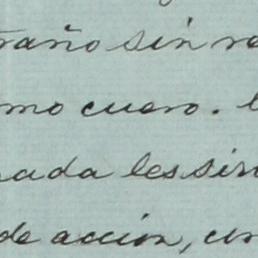 raño sin re
mo cuero.
nada les sir
de accion, con